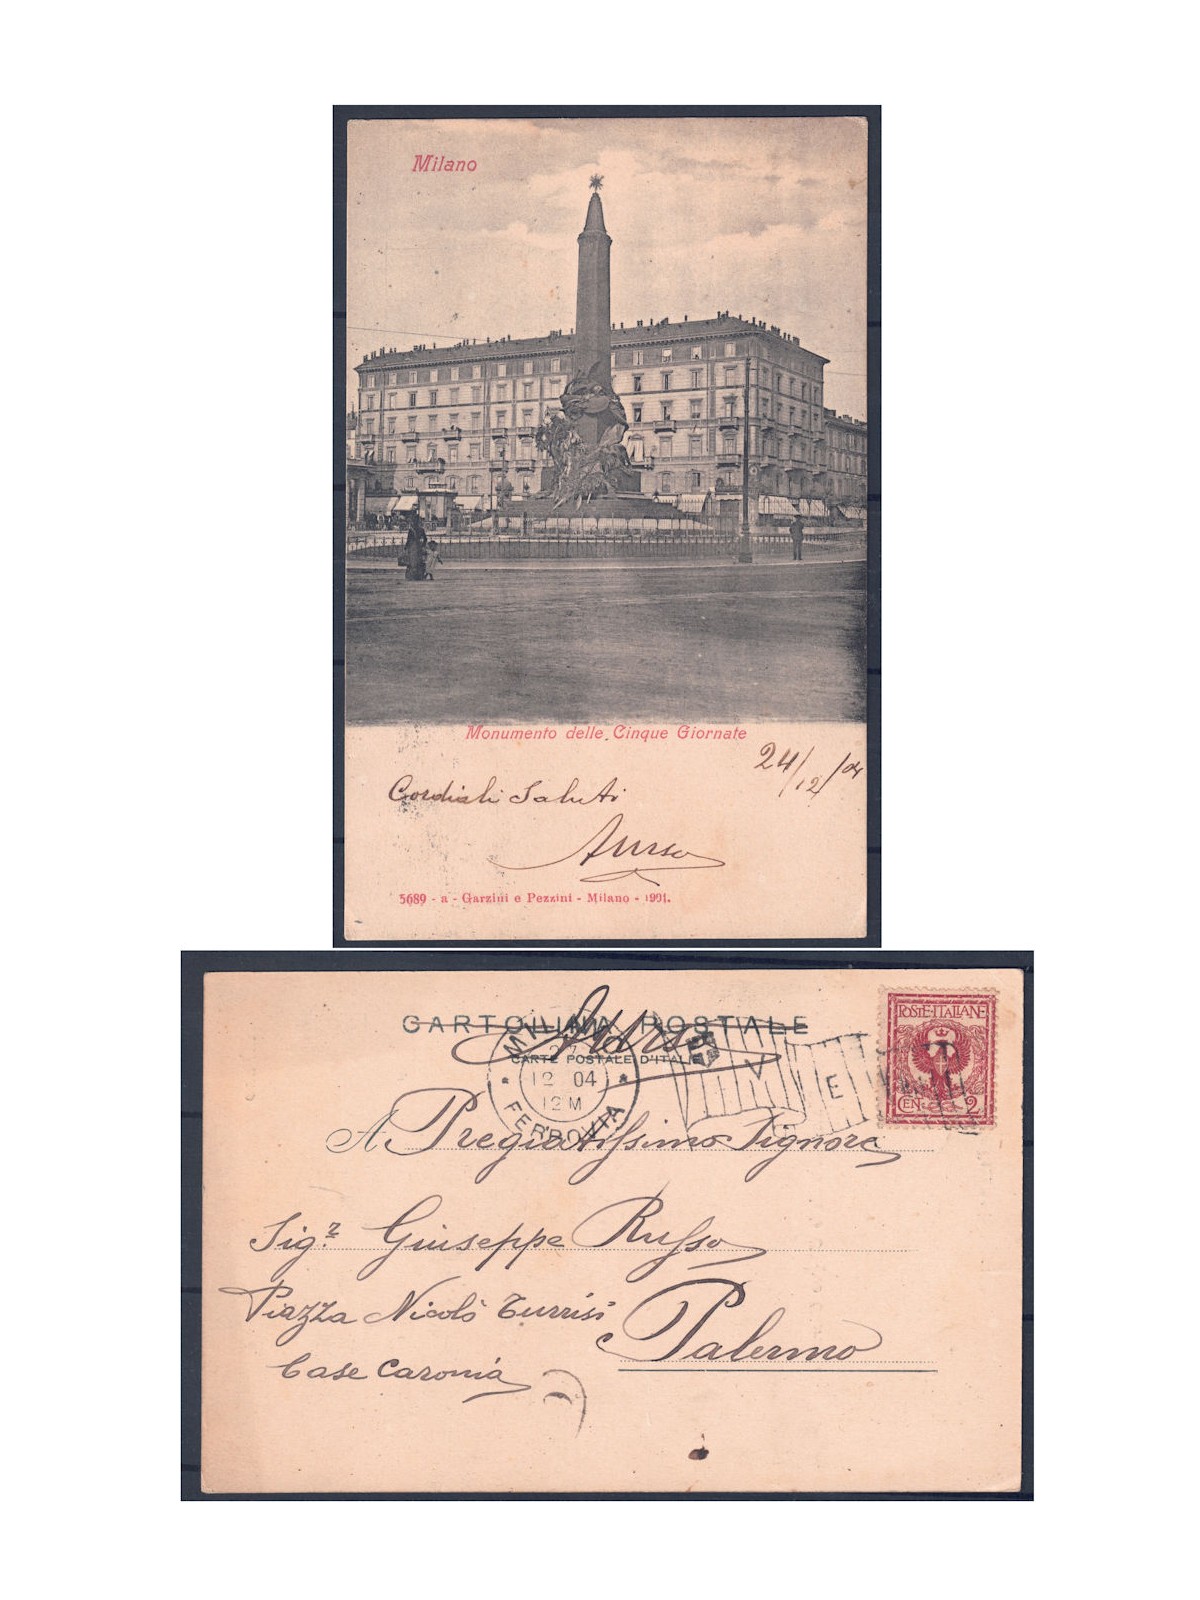 Milano
Monumento delle Cinque Giornate
24/12/04
Cordiali Saluti
5689 - a - Garzini e Pezzini - Milano - 1901.
CARTOLINA POSTALE
CARTE POSTALE D'ITALIE
POSTE·ITALIANE
CEN. 2
MILANO
12 04
12 M
FERROVIA
V E
A Pregiatissimo Signore
Sig.r Giuseppe Russo
Piazza Nicolò Turrisi
Palermo
Case Caronia